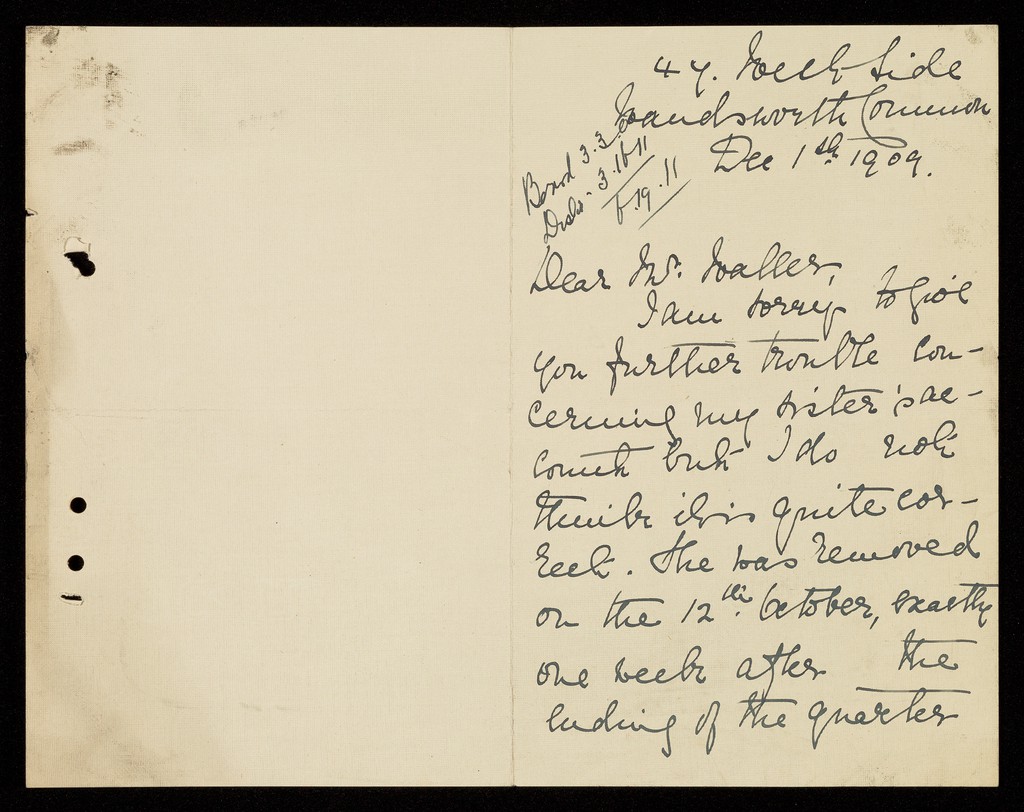 47. West Side
Wandsworth Common
Dec 1st 1909.
Board 3.3.
3.16.11
6.19.11
Dear Mr. Waller,
I am sorry to give
you further trouble con-
cerning my sister's ac-
count but I do not
think it is quite cor-
rect. She was removed
on the 12th. October, exactly
one week after the
ending of the quarter